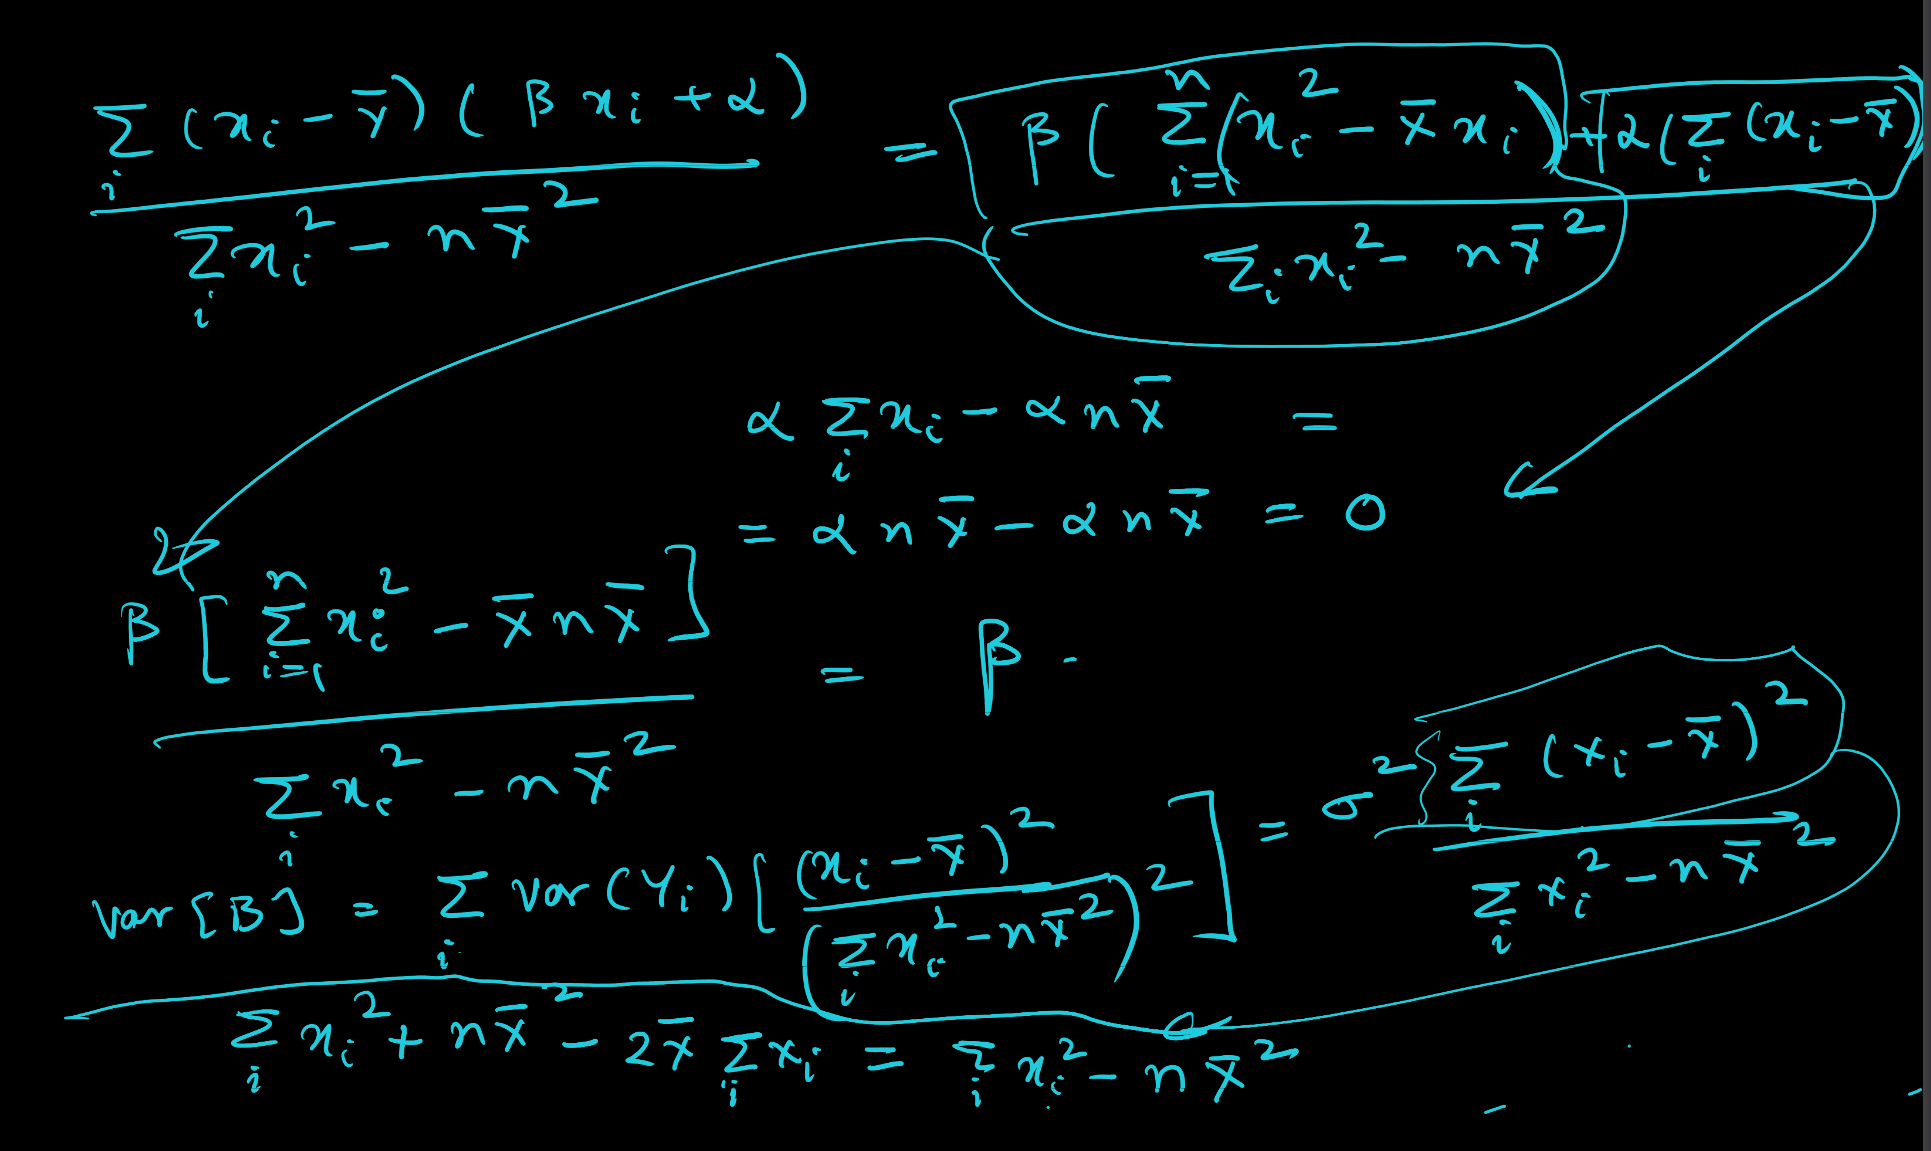 ∑_i (x_i − x̄)(βx_i + α) / (∑_i x_i² − n x̄²) = [β(∑_{i=1}^n (x_i² − x̄ x_i)) + α(∑_i (x_i − x̄))] / (∑_i x_i² − n x̄²)
α ∑_i x_i − α n x̄ =
= α n x̄ − α n x̄ = 0
β[∑_{i=1}^n x_i² − x̄ n x̄] / (∑_i x_i² − n x̄²) = β
var[B] = ∑_i var(Y_i) [(x_i − x̄)² / (∑_i x_i² − n x̄²)²] = σ² {∑_i (x_i − x̄)² / (∑_i x_i² − n x̄²)
∑_i x_i² + n x̄² − 2x̄ ∑_i x_i = ∑_i x_i² − n x̄²